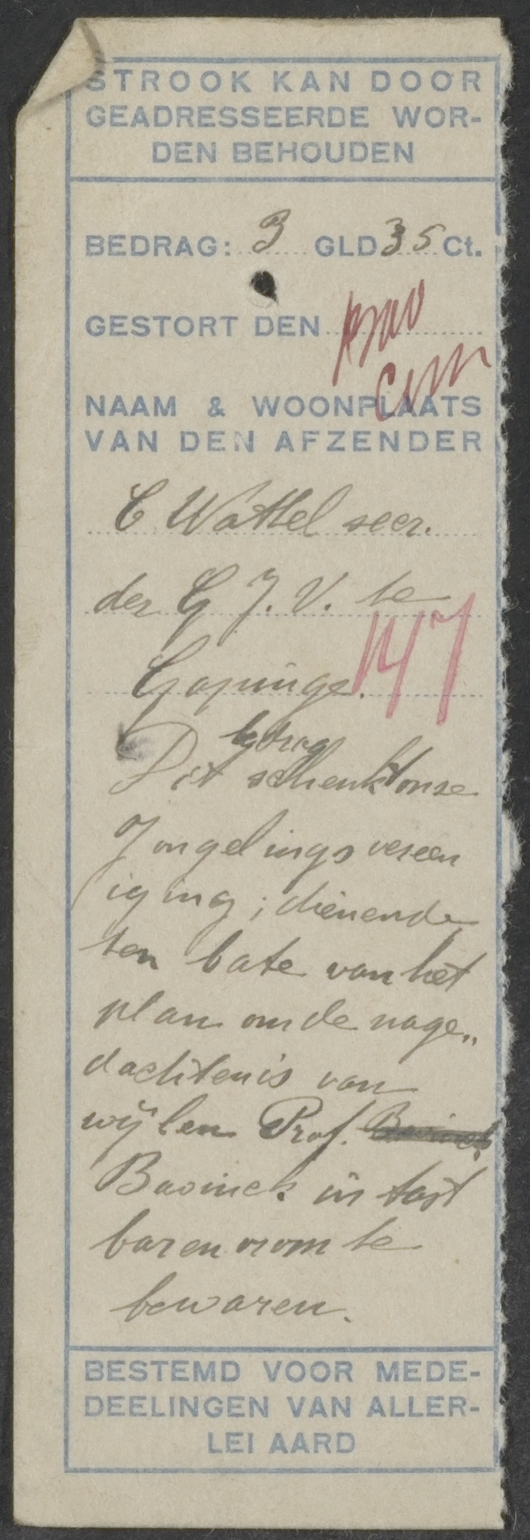 STROOK KAN DOOR
GEADRESSEERDE WOR-
DEN BEHOUDEN
BEDRAG: 3 GLD 35 Ct.
GESTORT DEN
NAAM & WOONPLAATS
VAN DEN AFZENDER
C Wattel secr.
der G J. V. te
147
bedrag
Dit schenkt onze
Jongelingsvereen
iging; dienende
ten bate van het
plan om de nage„
dachtenis van
wijlen Prof.
Bavinck in tast
baren vorm te
bewaren.
BESTEMD VOOR MEDE-
DEELINGEN VAN ALLER-
LEI AARD